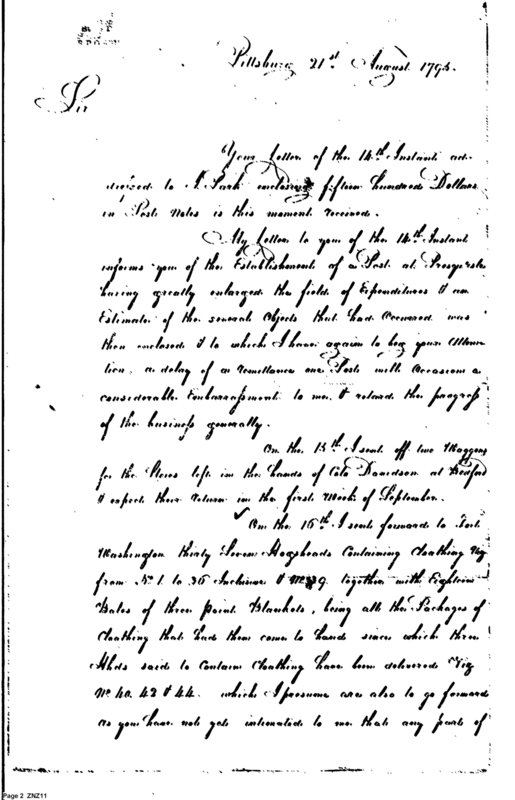 Pittsburg 21st August 1795.
Sir
Your Letter of the 14th Instant ad-
dressed to I. Park enclosing fifteen hundred Dollars
in Post Notes is this moment received.
My Letter to you of the 14th Instant
informs you of the Establishment of a Post at Presqu'isle
having greatly enlarged the field of Expenditures & an
Estimate of the several Objects that had Occurred was
then enclosed & to which I have again to beg your Atten-
tion, a delay of a remittance one Post will Occasion a
considerable Embarrassment to me & retard the progress
of the business generally.
On the 15th I sent off two Waggons
for the Stores left in the hands of Colo Davidson at Bedford
& expect their return in the first Week of September.
On the 16th I sent forward to Fort
Washington thirty Seven Hogsheads Containing Cloathing Viz
from No. 1 to 36 Inclusive & No. 39 together with Eighteen
Bales of three point Blankets, being all the Packages of
Cloathing that had then come to hand since which three
Hhds said to Contain Cloathing have been delivered Viz
No. 40. 42 & 44. which I presume are also to go forward
as you have not yet intimated to me that any part of
Page 2 ZNZ11